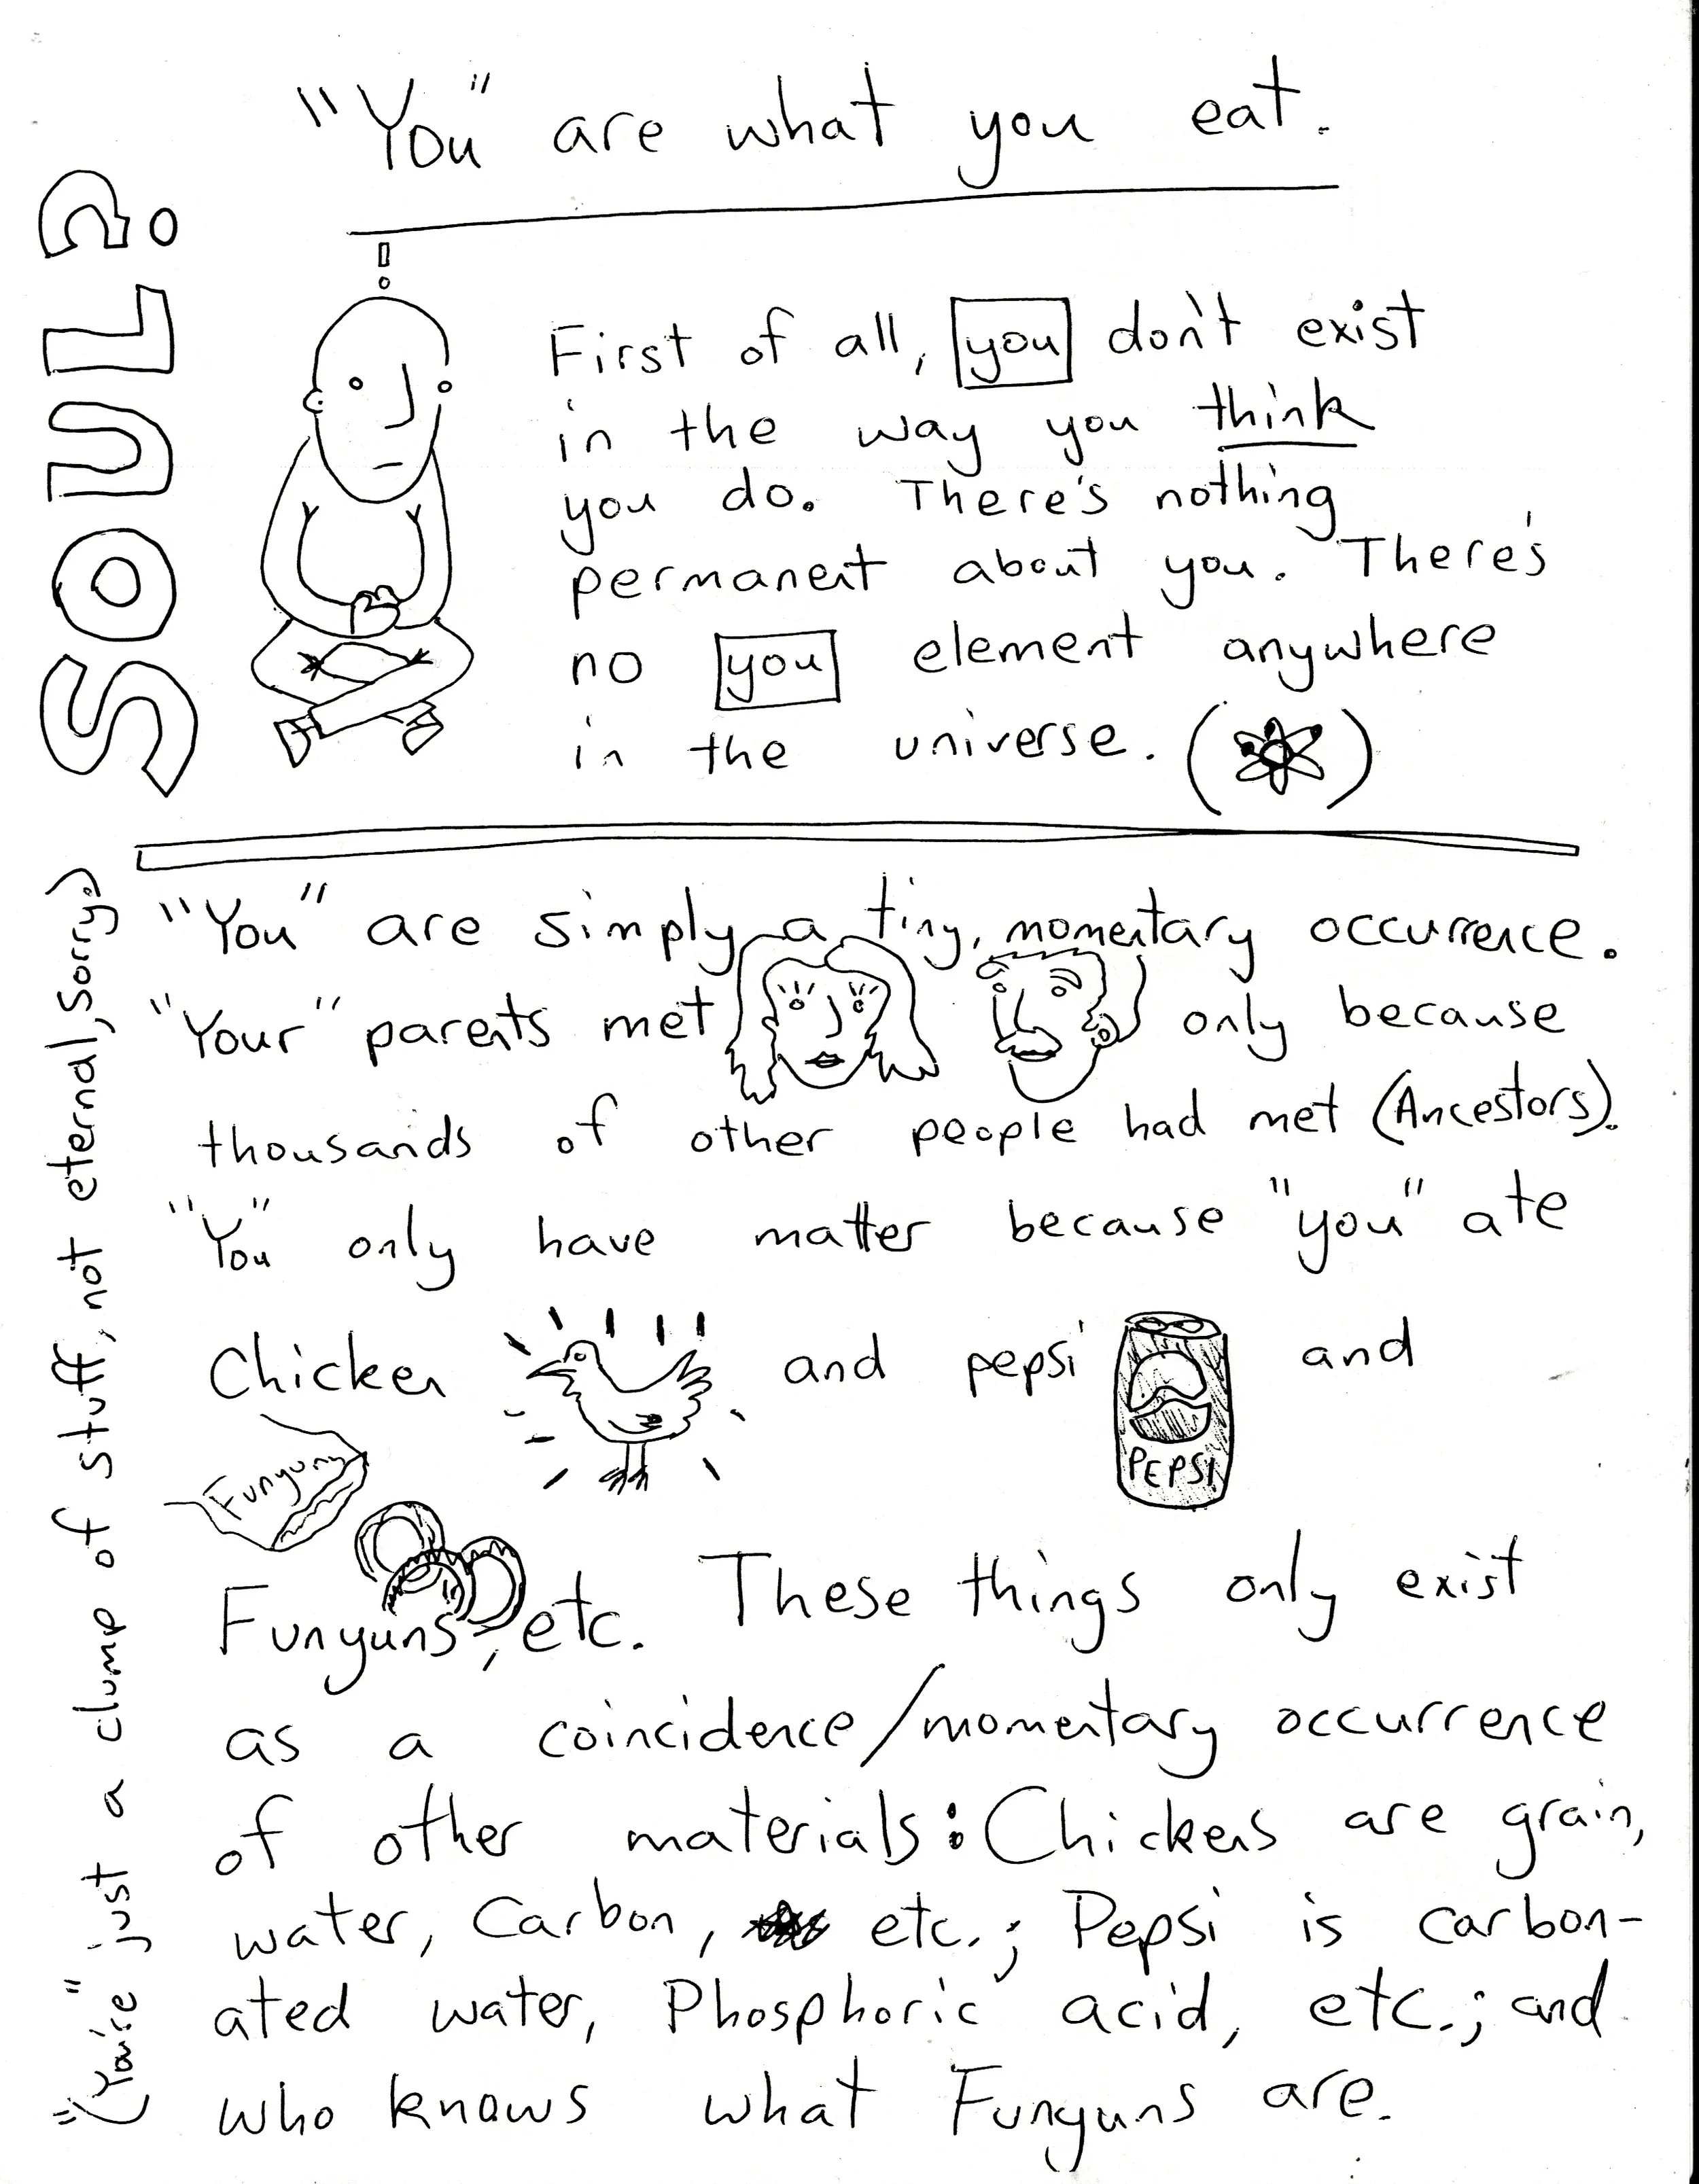 "You" are what you eat.
SOUL?
First of all, you don't exist
in the way you think
you do. There's nothing
permanent about you. There's
no you element anywhere
in the universe. ( )
"You" are simply a tiny, momentary occurrence.
"Your" parents met only because
thousands of other people had met (Ancestors).
"You" only have matter because "you" ate
Chicken and pepsi and
PEPSI
Funyuns
Funyuns, etc. These things only exist
as a coincidence/momentary occurrence
of other materials: Chickens are grain,
water, Carbon, etc.; Pepsi is carbon-
ated water, Phosphoric acid, etc.; and
who knows what Funyuns are.
("You're" just a clump of stuff, not eternal, sorry.)